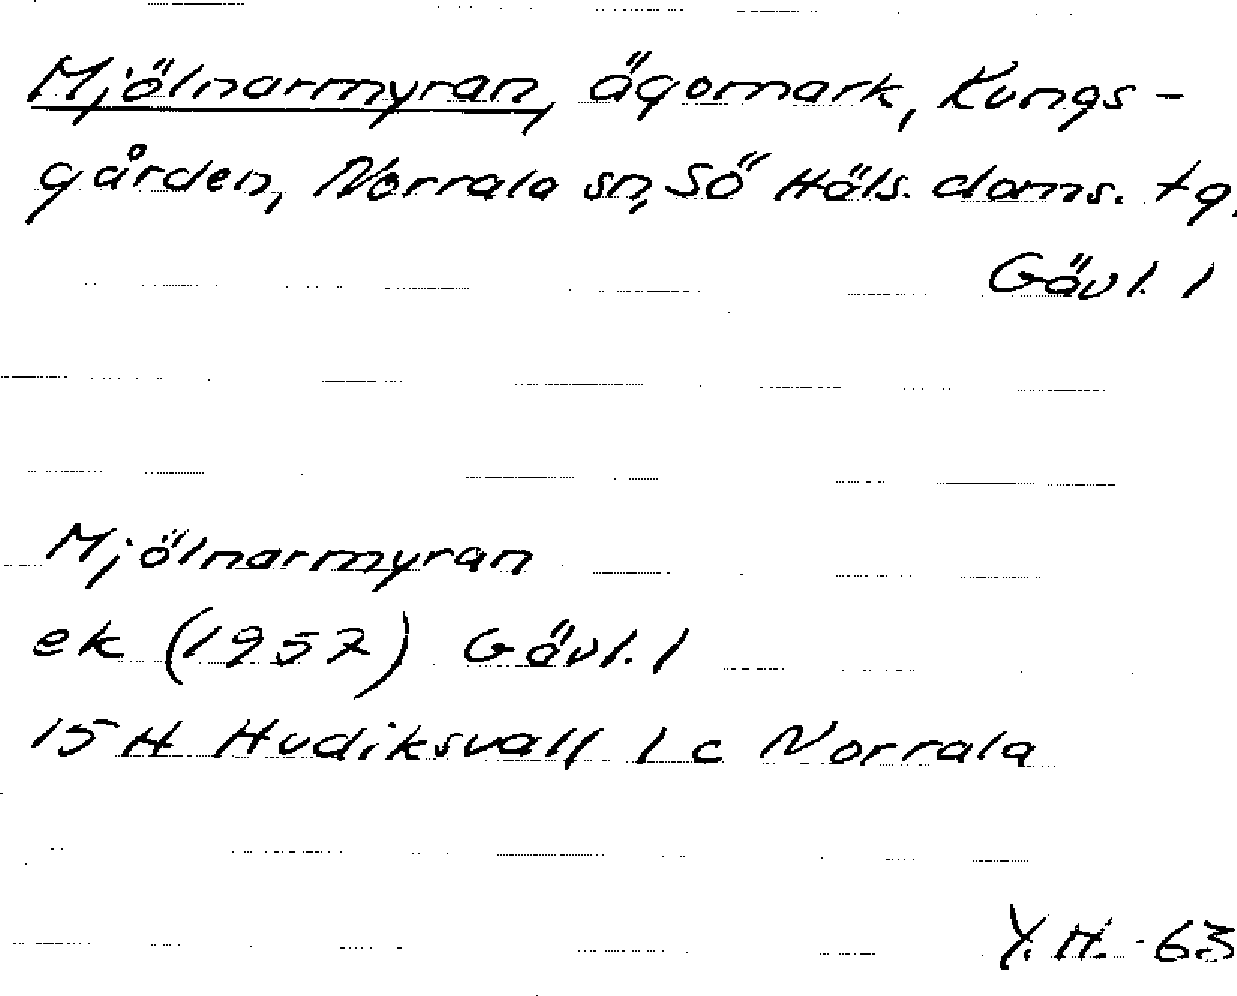 Mjölnarmyran, ägomark, Kungs-
gården, Norrala sn, Sö Häls. doms. tg.
Gävl. l
Mjölnarmyran
ek (1957) Gävl. l
15 H Hudiksvall 1 c Norrala
Y. H. -63